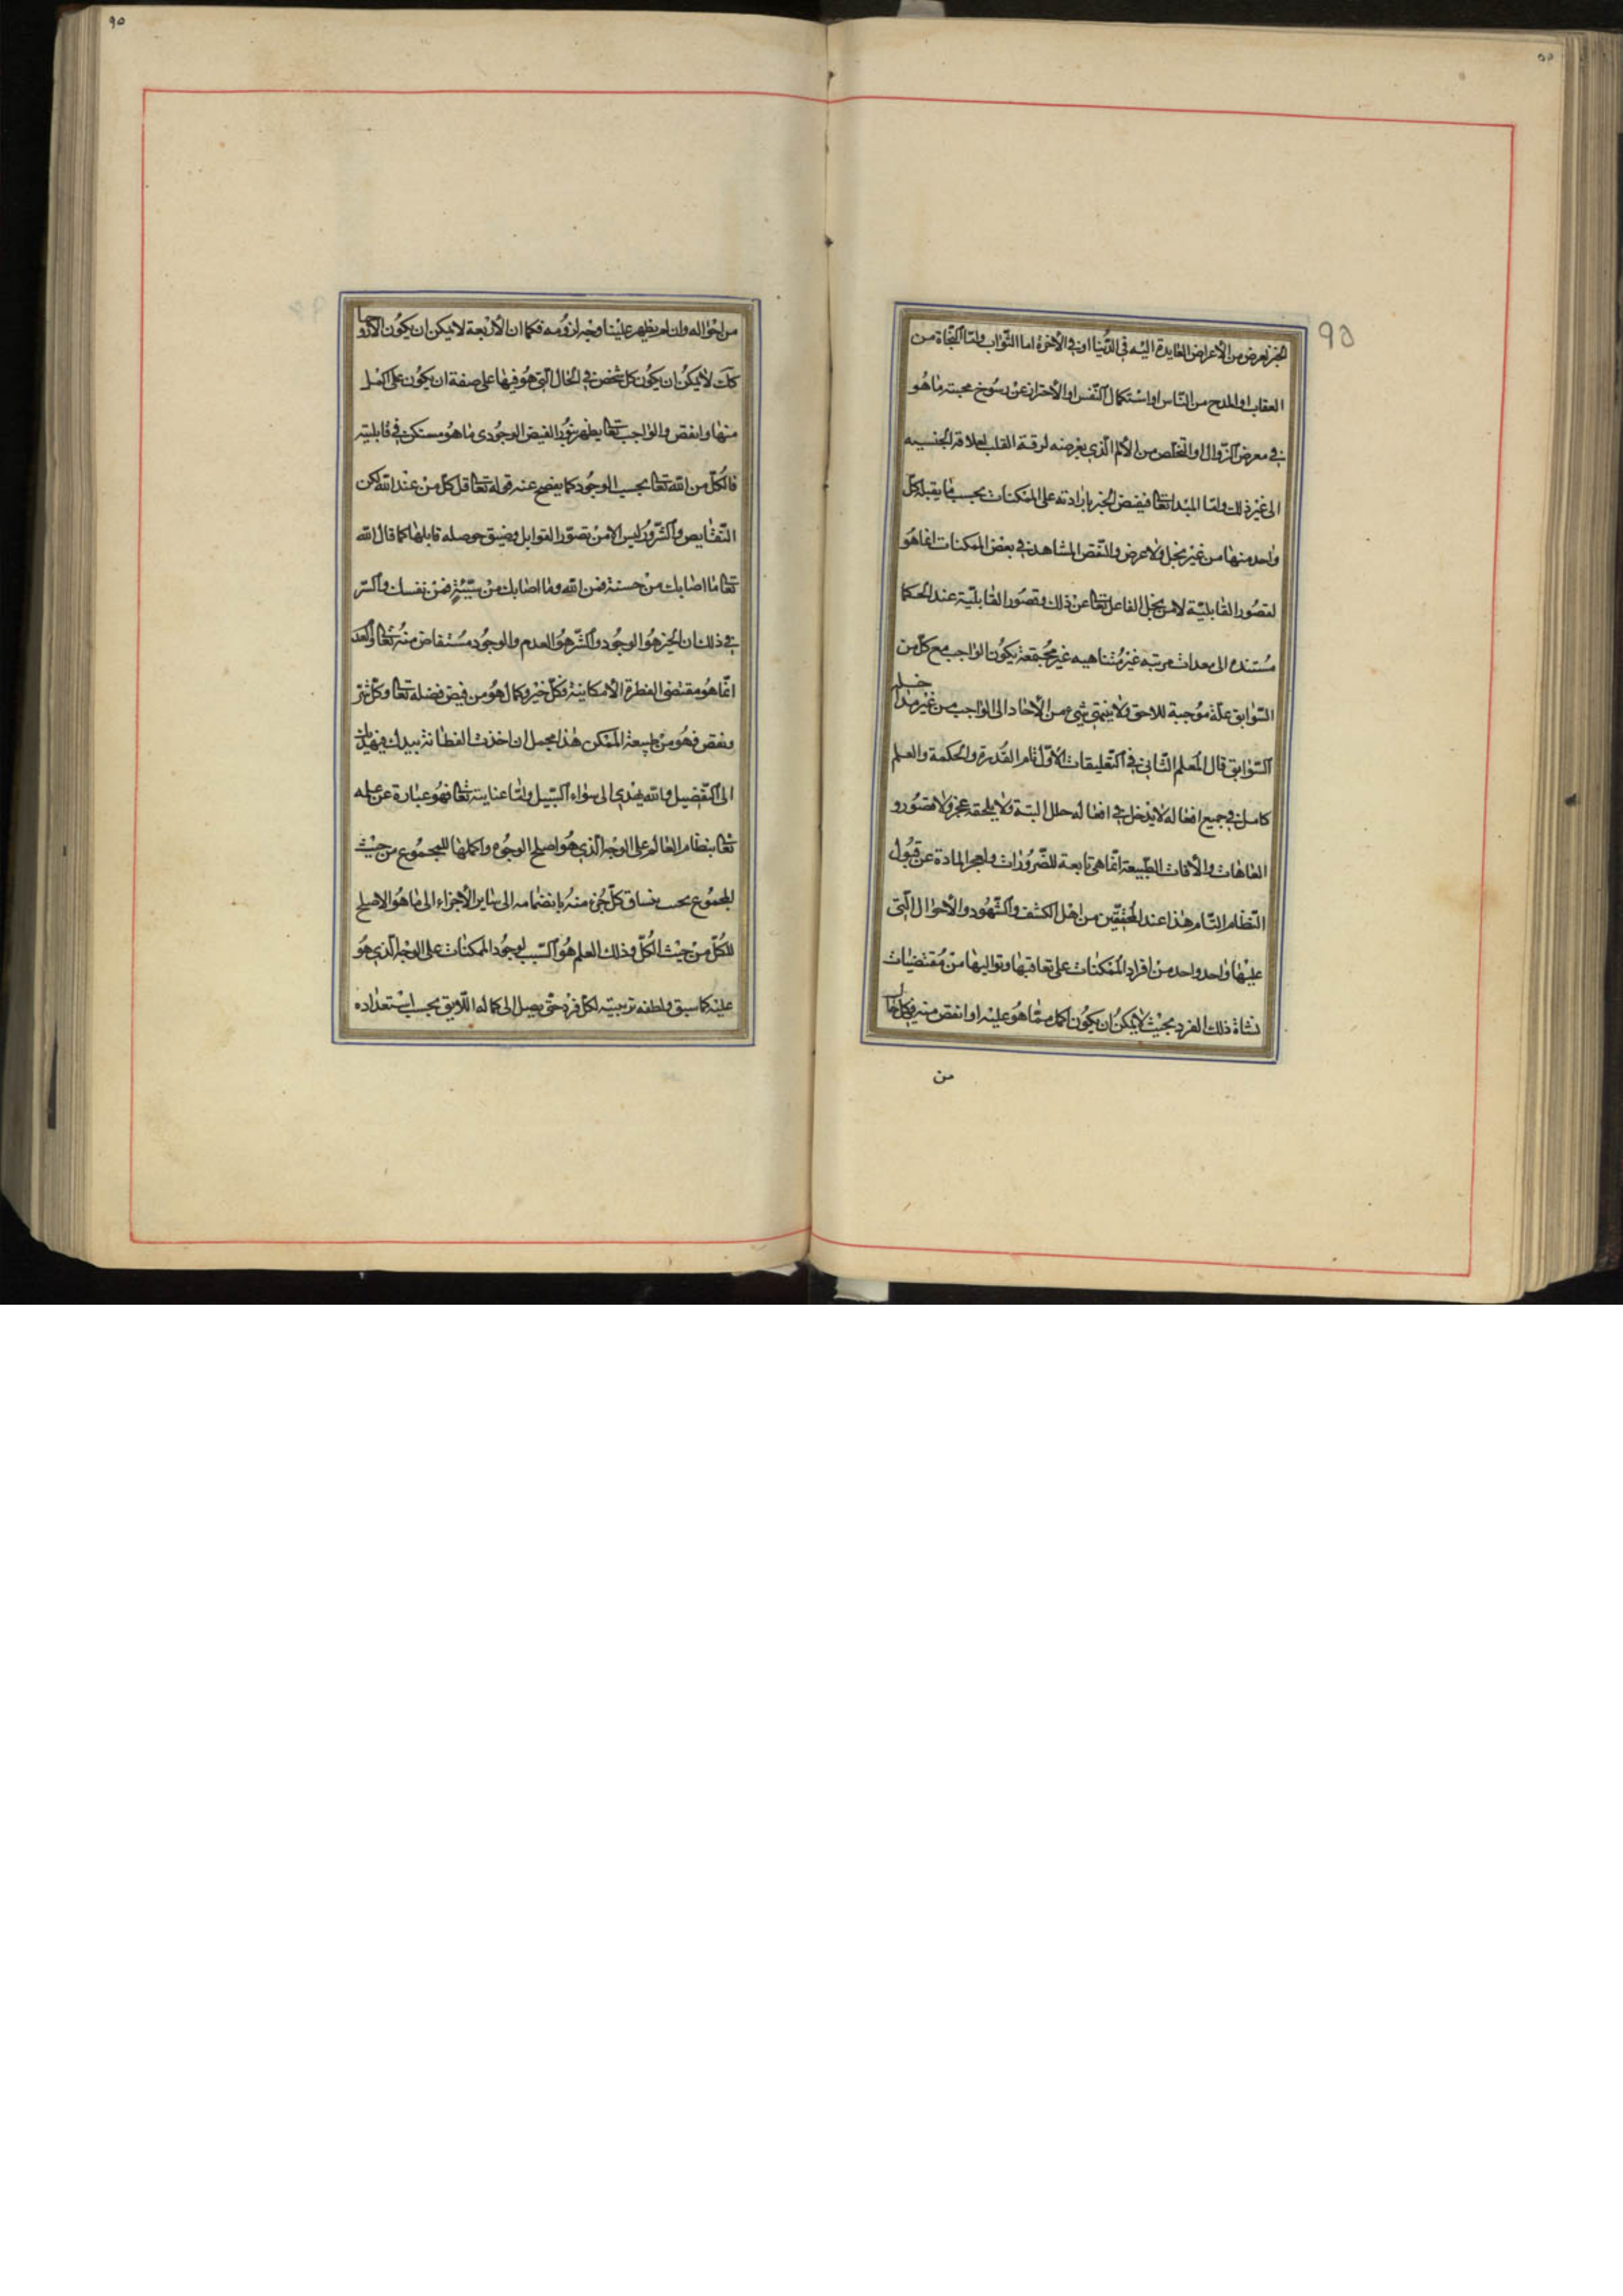 الخير لغرض من الأعراض العايدة اليه في الدّنيا او في الأخرة اما الثّواب وامّا النّجاة من
العقاب او المدح من النّاس او استكمال النّفس او الأحتراز عن رسوخ محبته ما هو
في معرض الزّوال او التخلّص من الألم الّذي يعرضه لرقة القلب لعلاقة الجنسيه
الى غير ذلك وامّا المبدا تعالى فيفيض الخير بارادته على الممكنات بحسب ما يقبله كلّ
واحد منها من غير بخل ولا عرض والنّقص المشاهد في بعض الممكنات انما هو
لقصور القابليّة لا من بخل الفاعل تعالى عن ذلك وقصور القابليّة عند الحكما
مستنده الى معدات مرتبه غير متناهيه غير مجتمعة يكون الواجب مع كلّ من
السّوابق علّة موجبة للاحق ولا ينتهي شيء من الأحاد الى الواجب من غير مدا خلة
السّوابق قال المعلم الثّاني في التّعليقات الأوّل تام القدرة والحكمة والعلم
كامل في جميع افعاله لا يدخل في افعاله خلل البتة ولا يلحقه عجز ولا قصور و
العاهات والأفات الطّبيعة انّما هي تابعة للضّرورات ولعجز المادة عن قبول
النّظام التّام هذا عند المحقّقين من اهل الكشف والشّهود والأحوال الّتي
عليها واحد واحد من افراد الممكنات على تعاقبها وتواليها من مقتضيات
نشاة ذلك الفرد بحيث لا يمكن ان يكون اكمل ممّا هو عليه او انقص منه في كل حال
من
من احواله وان لم يظهر علينا وجه لزومه فكما ان الأربعة لا يمكن ان يكون الا زوجا
كك لا يمكن ان يكون كل شخص في الحال الّتي هو فيها على صفة ان يكون على اكمل
منها وانقص والواجب تعالى يظهر بنور الفيض الوجودي ما هو مستكن في قابليته
فالكلّ من الله تعالى بحسب الوجود كما يفصح عنه قوله تعالى قل كلّ من عند الله لكن
النّقايص والشّرور ليس الا من قصور القوابل وضيق حوصله قابلها كما قال الله
تعالى ما اصابك من حسنة فمن الله وما اصابك من سيّئة فمن نفسك والسّر
في ذلك ان الخير هو الوجود والشّر هو العدم والوجود مستفاض منه تعالى والعدم
انّما هو مقتضى الفطرة الأمكانية فكلّ خير وكمال هو من فيض فضله تعالى وكلّ شرّ
ونقص فهو من طبيعة الممكن هذا مجمل ان اخذت الفطانة بيدك فيهديك
الى التّفضيل والله يهدي الى سواء السّبيل وامّا عنايته تعالى فهو عبارة عن علمه
تعالى بنظام العالم على الوجه الّذي هو اصلح الوجوه واكملها للمجموع من حيث
المجموع بحسب ينساق كلّ جزء منه بانضمامه الى ساير الأجزاء الى ما هو الاصلح
للكلّ من حيث الكلّ وذلك العلم هو السّبب لوجود الممكنات على الوجه الّذي هو
عليه كما سبق ولطفه تربيته لكلّ فرد حتّى يصل الى كماله اللّايق بحسب استعداده